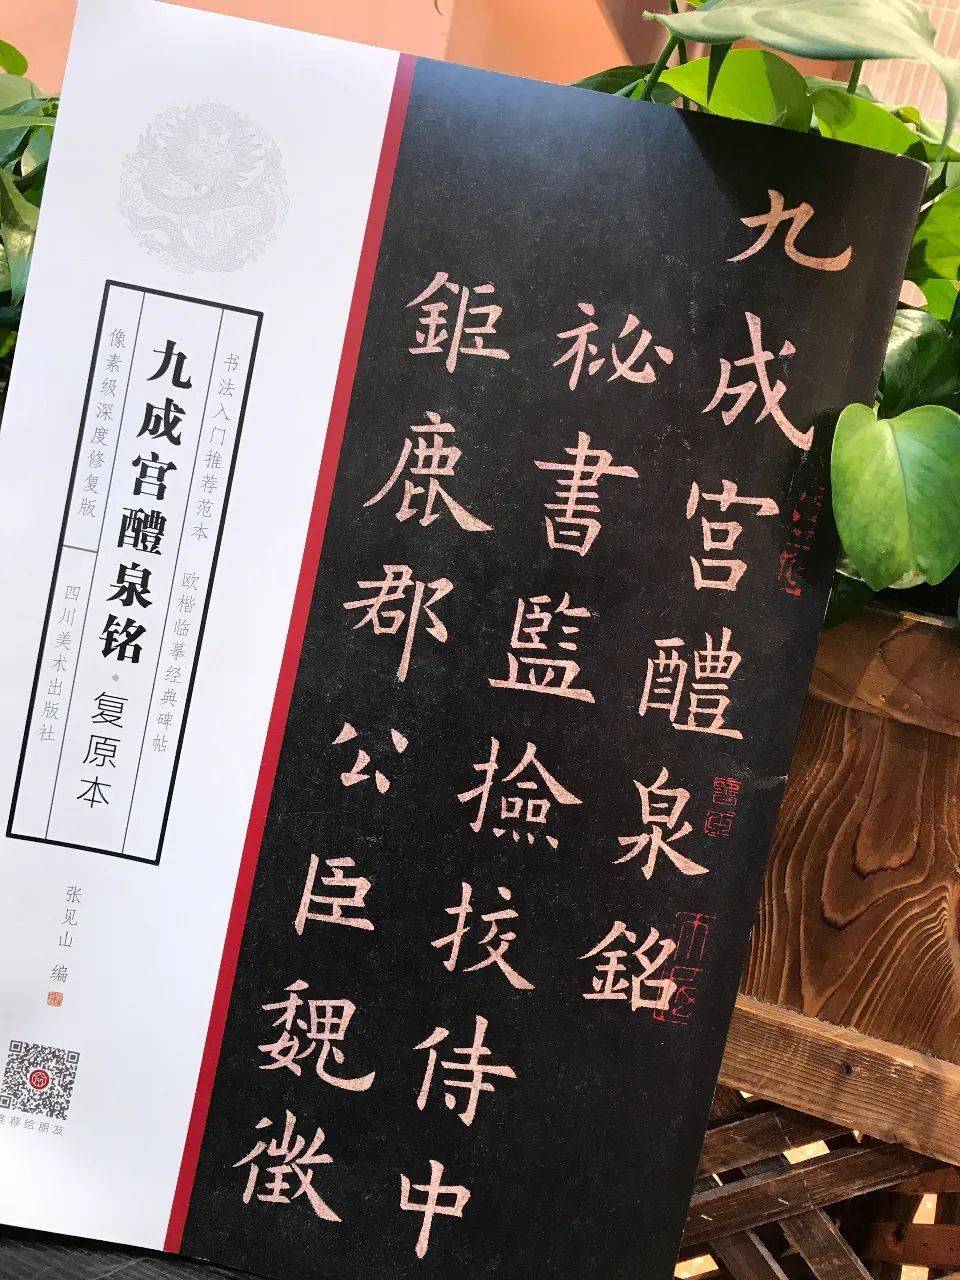 九成宮醴泉銘
祕書監撿挍侍中
鉅鹿郡公臣魏徵
书法入门推荐范本 欧楷临摹经典碑帖
九成宫醴泉铭·复原本
像素级深度修复版
四川美术出版社
张见山 编
推荐给朋友